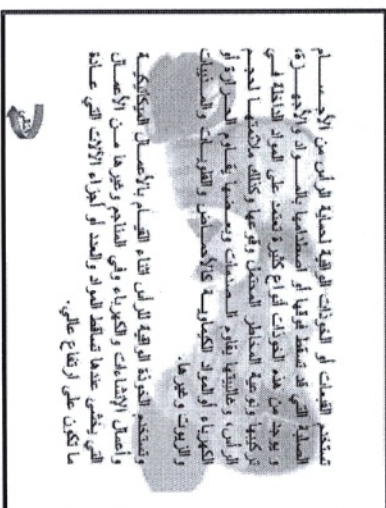 تستخدم القبعات أو الخوذات الواقية لحماية الرأس من الأجسام
الصلبة التي قد تسقط فوقها أو اصطدامها بالمواد والأجهزة،
ويوجد من هذه الخوذات أنواع كثيرة تعتمد على المواد الداخلة في
تركيبها ونوعية المخاطر المحتمل وقوعها وكذلك ملائمتها لحجم
الرأس، وغالبيتها يقاوم الصدمات وبعضها يقاوم الحرارة أو
الكهرباء أو المواد الكيماوية كالأحماض والقلويات والمذيبات
والزيوت وغيرها.
وتستخدم الخوذة الواقية للرأس أثناء القيام بالأعمال الميكانيكية
وأعمال الإنشاءات والكهرباء وفي المناجم وغيرها من الأعمال
التي يخشى عندها تساقط المواد والعدد أو أجزاء الآلات التي عادة
ما تكون على ارتفاع عالي.